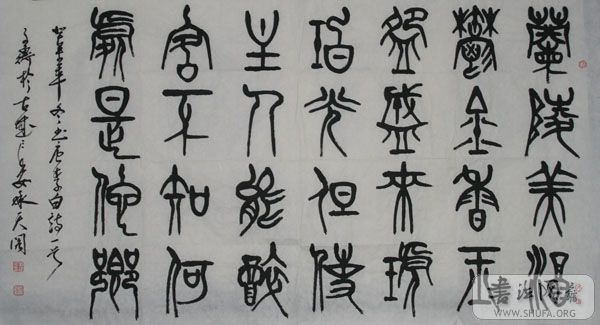 蘭陵美酒
鬱金香玉
盌盛來琥
珀光但使
主人能醉
客不知何
處是他鄉
年冬書唐李白詩一首
於古
WWW.SHUFA.ORG